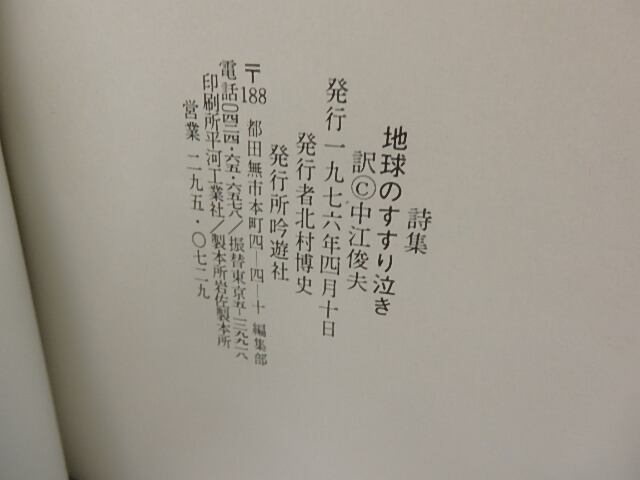 詩集
地球のすすり泣き
訳©中江俊夫
発行一九七六年四月十日
発行者北村博史
発行所吟遊社
〒188 都田無市本町四—四—十 編集部
電話〇四二四・六五・六五七八／振替東京五—一三九九一八
印刷所平河工業社／製本所岩佐製本所
営業 二九五・〇七二九